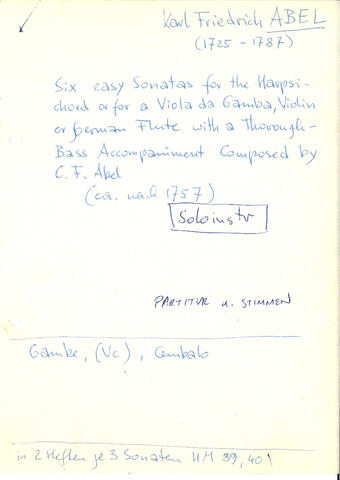 Karl Friedrich ABEL
(1725 - 1787)
Six easy Sonatas for the Harpsi-
chord or for a Viola da Gamba, Violin
or german Flute with a Thorough-
Bass Accompaniment Composed by
C. F. Abel
(ca. nach 1757)
Soloinstr
PARTITUR u. STIMMEN
Gambe, (Vc), Cembalo
in 2 Heften je 3 Sonaten HM 39, 40